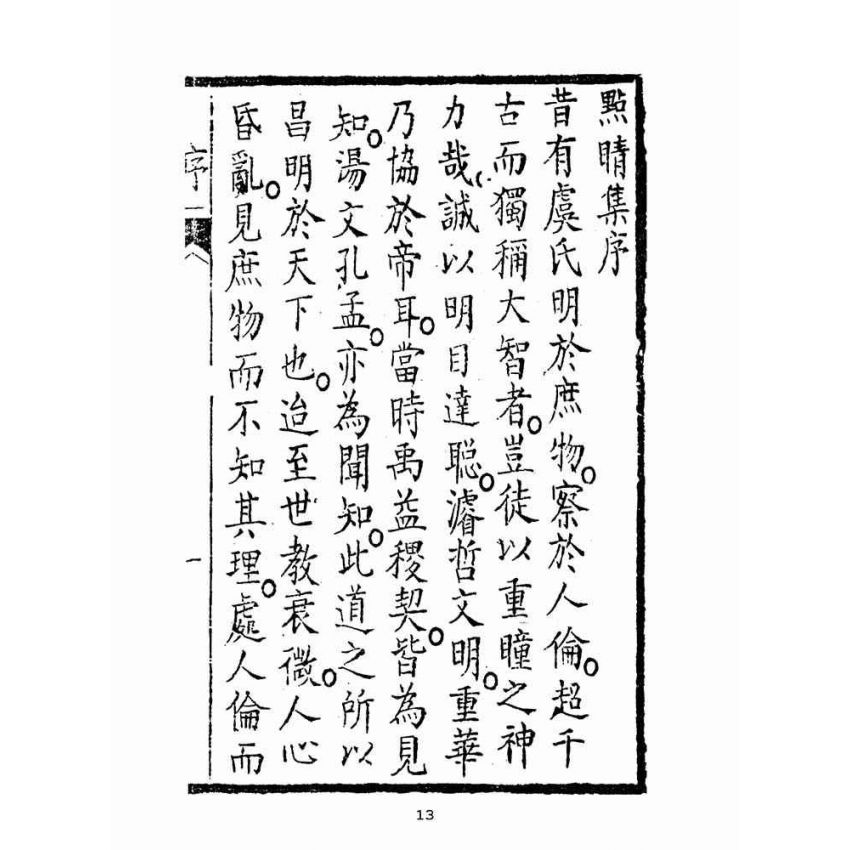 點睛集序
昔有虞氏明於庶物。察於人倫。超千
古而獨稱大智者。豈徒以重瞳之神
力哉。誠以明目達聰。濬哲文明。重華
乃協於帝耳。當時禹益稷契。皆為見
知。湯文孔孟。亦為聞知。此道之所以
昌明於天下也。迨至世教衰微。人心
昏亂。見庶物而不知其理。處人倫而
序
一
13